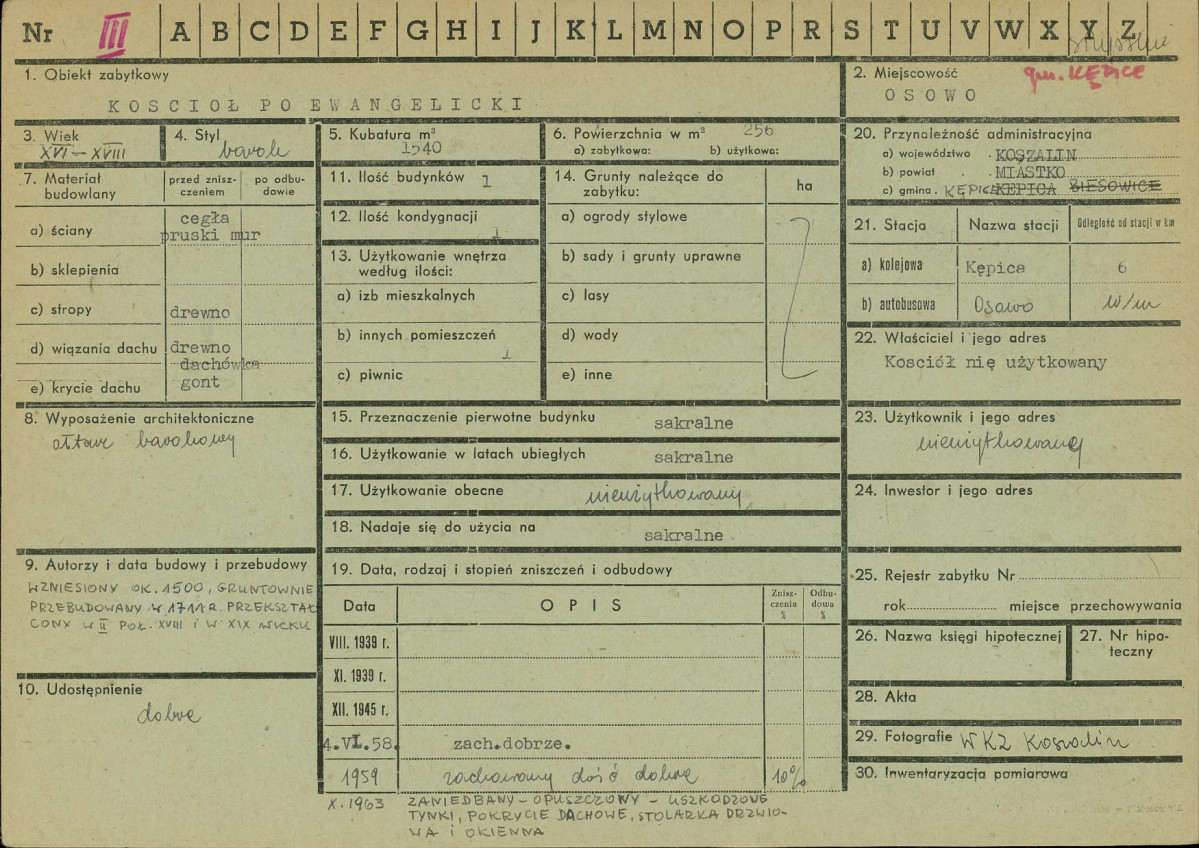 Nr III A B C D E F G H I J K L M N O P R S T U V W X Y Z
1. Obiekt zabytkowy
KOSCIOŁ PO EWANGELICKI
2. Miejscowość
gm. KĘPICE
OSOWO
3. Wiek
XVI – XVIII
4. Styl
barok
5. Kubatura m³
1540
6. Powierzchnia w m² 256
a) zabytkowa: b) użytkowa:
20. Przynależność administracyjna
a) województwo KOSZALIN
b) powiat MIASTKO
c) gmina KĘPICE KĘPICA BIESOWICE
7. Materiał budowlany
przed zniszczeniem
po odbudowie
a) ściany
cegła
pruski mur
b) sklepienia
c) stropy drewno
d) wiązania dachu drewno
dachówka
e) krycie dachu gont
11. Ilość budynków 1
12. Ilość kondygnacji
1
13. Użytkowanie wnętrza
według ilości:
a) izb mieszkalnych
b) innych pomieszczeń
1
c) piwnic
14. Grunty należące do
zabytku:
ha
a) ogrody stylowe
b) sady i grunty uprawne
c) lasy
d) wody
e) inne
21. Stacja Nazwa stacji Odległość od stacji w km
a) kolejowa Kępica 6
b) autobusowa Osowo w/m
22. Właściciel i jego adres
Kosciół nię użytkowany
8. Wyposażenie architektoniczne
ołtarz barokowy
15. Przeznaczenie pierwotne budynku sakralne
16. Użytkowanie w latach ubiegłych sakralne
17. Użytkowanie obecne nieużytkowany
18. Nadaje się do użycia na sakralne
23. Użytkownik i jego adres
nieużytkowany
24. Inwestor i jego adres
9. Autorzy i data budowy i przebudowy
WZNIESIONY OK. 1500, GRUNTOWNIE
PRZEBUDOWANY W 1711 R. PRZEKSZTAŁ
CONY W II POŁ. XVIII I W XIX WIEKU
19. Data, rodzaj i stopień zniszczeń i odbudowy
Data OPIS Zniszczenia % Odbudowa %
VIII. 1939 r.
XI. 1939 r.
XII. 1945 r.
4.VI.58. zach.dobrze.
1959 zachowany dość dobrze 10%
X. 1963 ZANIEDBANY – OPUSZCZONY – USZKODZONE
TYNKI, POKRYCIE DACHOWE, STOLARKA DRZWIO-
WA I OKIENNA
10. Udostępnienie
dobre
25. Rejestr zabytku Nr
rok miejsce przechowywania
26. Nazwa księgi hipotecznej
27. Nr hipoteczny
28. Akta
29. Fotografie WKZ Koszalin
30. Inwentaryzacja pomiarowa